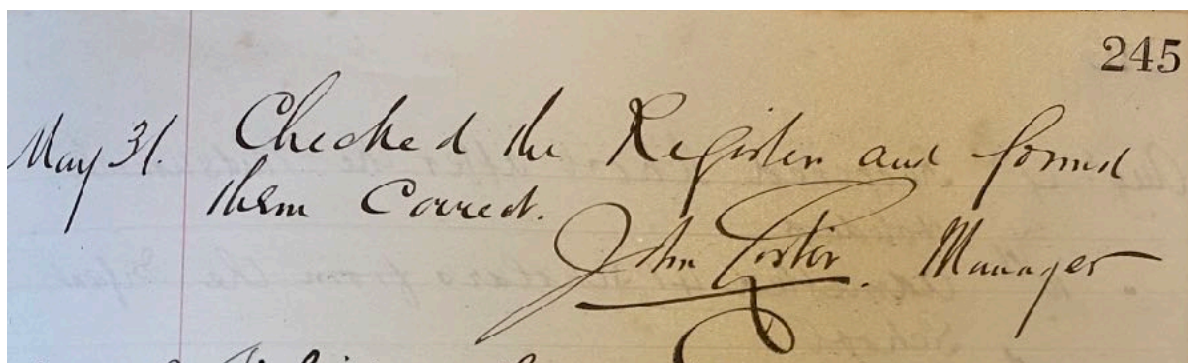 245
May 31. Checked the Register and found
them Correct.
John Manager